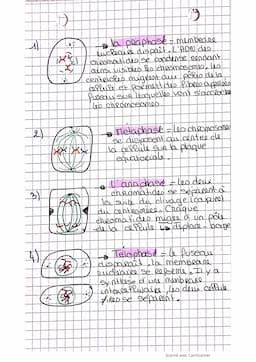 1)
La prophase = membrane
nucléaire disparait. L'ADN des
chromatides se condense rendant
ainsi visibles les chromosomes, les
centrioles migrent aux pôles de la
cellule et forment des fibres appelées
fuseau sur lesquelles vont s'accrocher
les chromosomes
2)
Métaphase = les chromosomes
se disposent au centre de
la cellule sur la plaque
équatoriale.
3)
L'anaphase = les deux
chromatides se séparent à
la suite du clivage (coupure)
du centromère. Chaque
chromatides migre à un pôle
de la cellule
4)
Télophase = le fuseau
disparait. la membrane
nucléaire se reforme. Il y a
synthèse d'une membrane
intercellulaire, les deux cellules
filles se séparent.